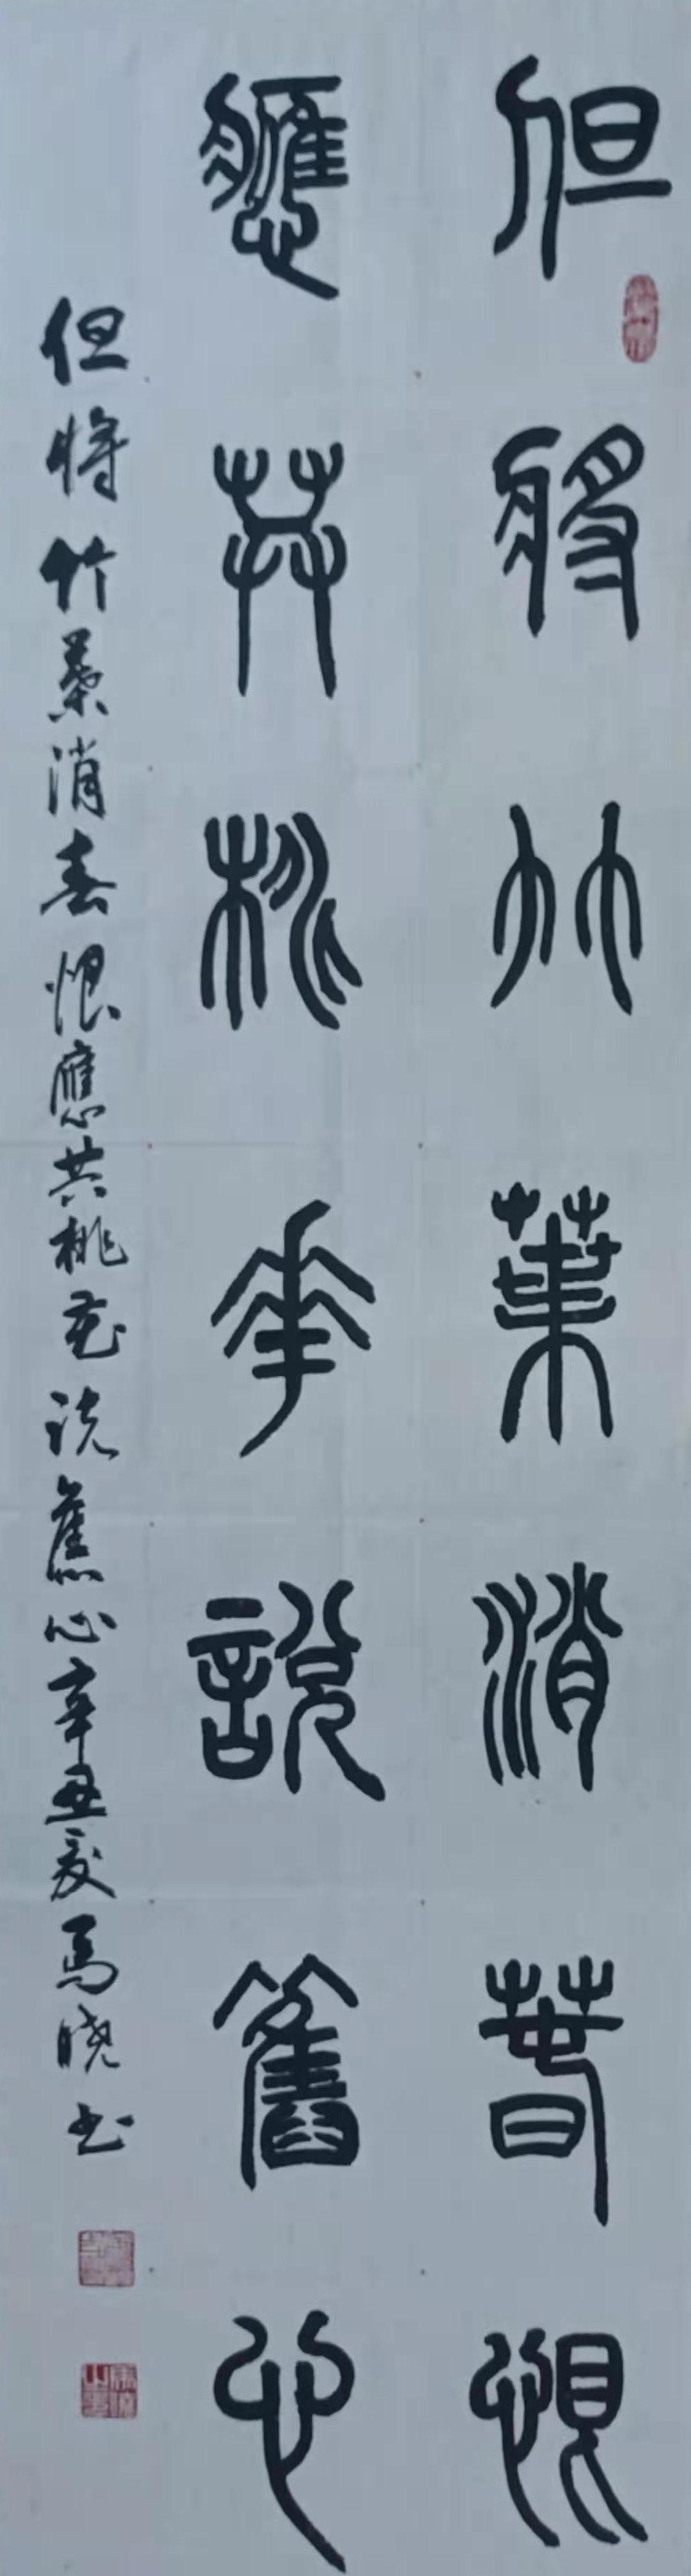 但將竹葉消春恨
應共桃華說舊心
但将竹葉消春恨應共桃花说舊心辛丑夏馬曉书